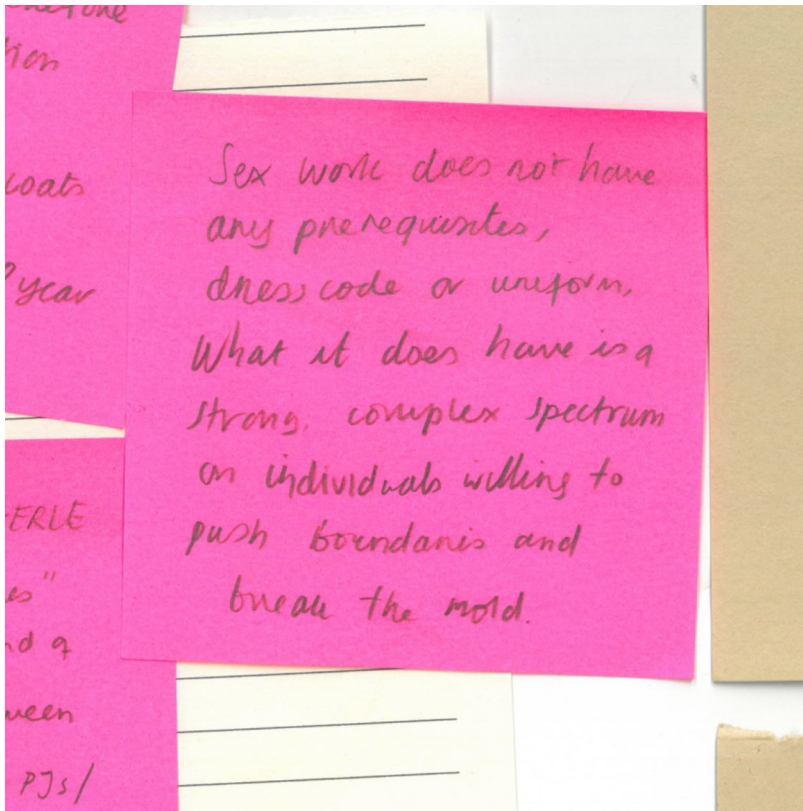 tion
coats
year
ERLE
es"
nd a
ween
PJs/
Sex work does not have
any prerequisites,
dress code or uniform.
What it does have is a
strong, complex spectrum
on individuals willing to
push boundaries and
break the mold.